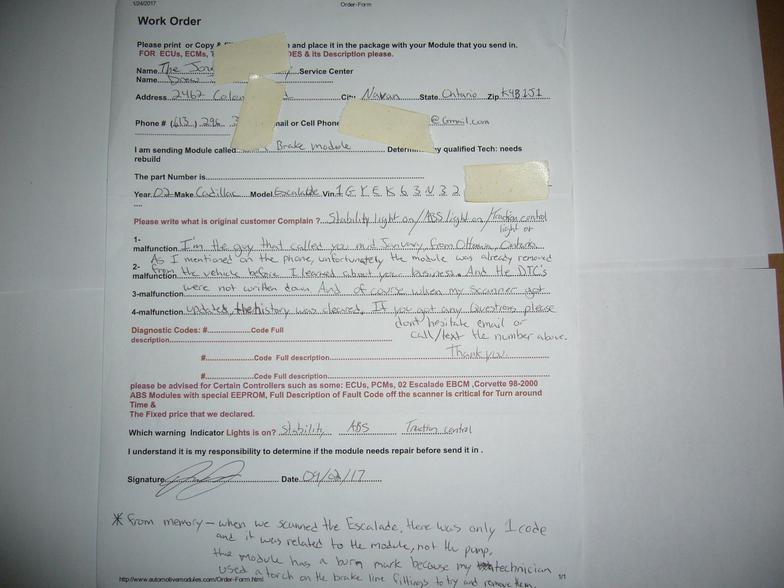 1/24/2017 Order-Form
Work Order
Please print or Copy & n and place it in the package with your Module that you send in.
FOR ECUs, ECMs, DES & its Description please.
Name The Service Center
Name
Address 2462 City Navan State Ontario Zip K4B1J1
Phone # (613) 296 3 mail or Cell Phone @Gmail.com
I am sending Module called Brake module Determ y qualified Tech: needs
rebuild
The part Number is
Year 02 Make Cadillac Model Escalade Vin 1GYEK63N32
Please write what is original customer Complain ? Stability light on / ABS light on / Traction control
light on
1-
malfunction I'm the guy that called you mid January from Ottawa, Ontario.
As I mentioned on the phone, unfortunately the module was already removed
2-
malfunction from the vehicle before I learned about your business. And the DTC's
3-malfunction were not written down And of course when my scanner got
4-malfunction updated, the history was cleared. If you got any Questions, please
don't hesitate email or
Diagnostic Codes: # Code Full
call/text the number above.
description
Thank you.
# Code Full description
# Code Full description
please be advised for Certain Controllers such as some: ECUs, PCMs, 02 Escalade EBCM ,Corvette 98-2000
ABS Modules with special EEPROM, Full Description of Fault Code off the scanner is critical for Turn around
Time &
The Fixed price that we declared.
Which warning Indicator Lights is on? Stability ABS Traction control
I understand it is my responsibility to determine if the module needs repair before send it in .
Signature Date 09/02/17
* From memory - when we scanned the Escalade, there was only 1 code
and it was related to the module, not the pump,
the module has a burn mark because my technician
used a torch on the brake line fittings to try and remove them.
http://www.automotivemodules.com/Order-Form.html 1/1